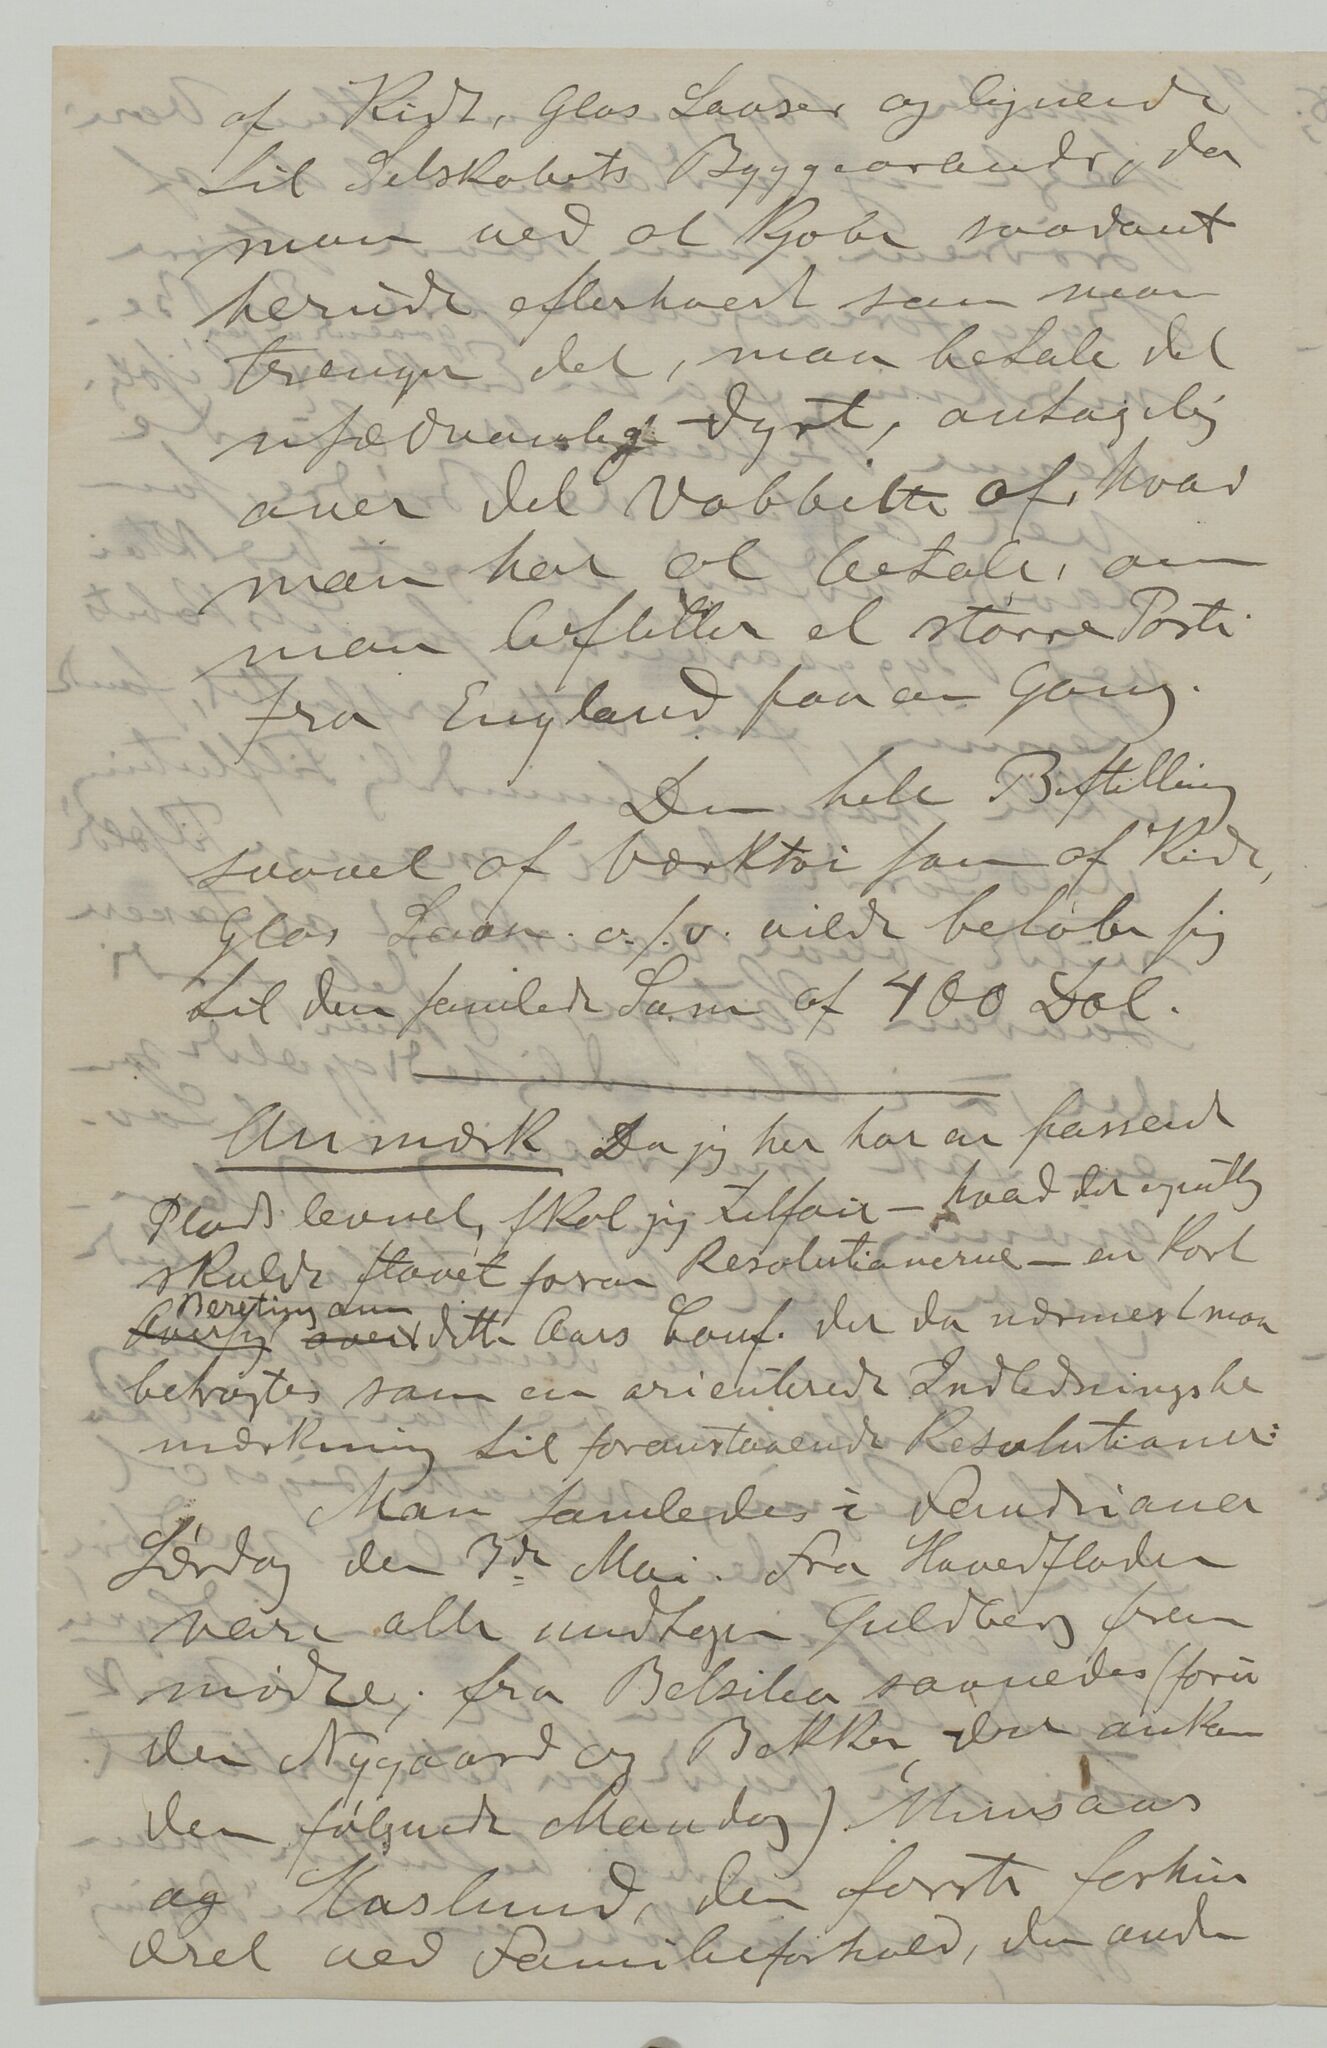 af Kidt, Glas Laaser og lignende
til Selskabets Byggearender, da
man ved at Kjøbe saadant
herude efterhvert som man
trenger det, maa betale det
usædvanlig dyrt, antagelig
over det Dobbelte af, hvad
man har at betale, om
man bestiller et større Parti
fra England paa en Gang.
Den hele Bestilling
saavel af Værktøi som af Kidt,
Glas Laase o.s.v. vilde beløbe sig
til den samlede Sum af 400 Dol.
Anmærk Da jeg her har en passende
Plads levnet, skal jeg tilføie – hvad der egentlig
skulde staaet foran Resolutionerne – en kort
Beretning om
Oversigt over dette Aars Conf. der da nærmest maa
betragtes som en orienterede Indledningsbe
mærkning til foranstaaende Resolutioner:
Man samledes i Fandriana
Lørdag den 3de Mai. Fra Hovedfladen
vare alle undtagen Guldberg frem
mødte; fra Betsileo savnedes (foru
den Nygaard og Bekker, der ankom
den følgende Mandag) Minsaas
og Haslund, den første forhin
dret ved Familieforhold, den anden